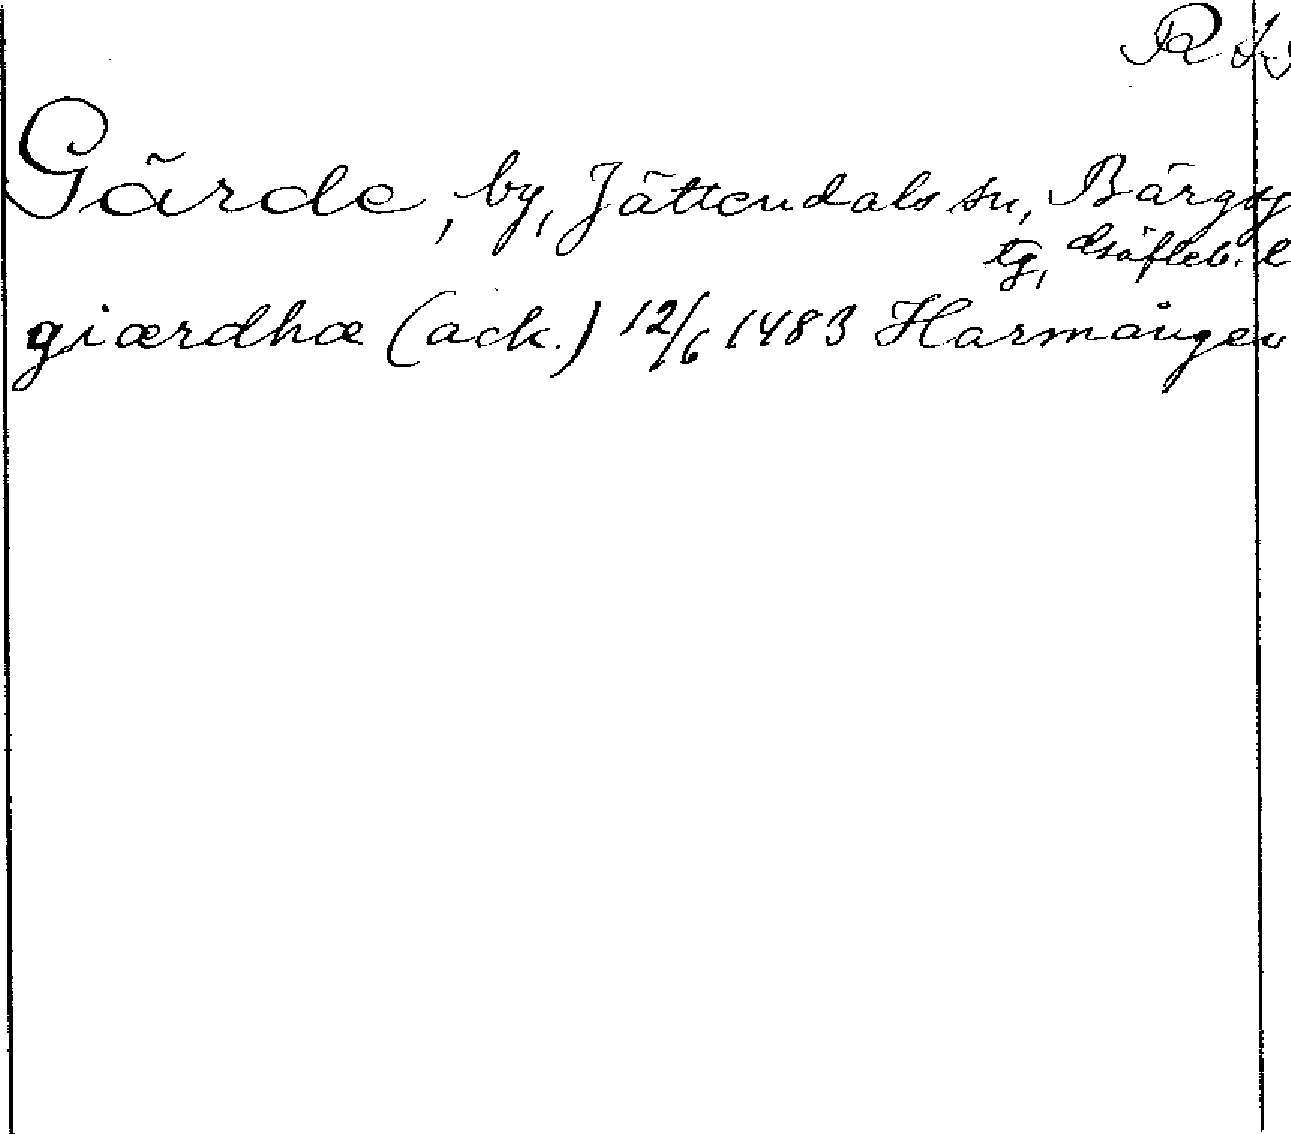 R
Gärde, by, Jättendals sn, Bärgsj
tg, Gäfleb. l
giærdhæ (ack.) 12/6 1483 Harmånger